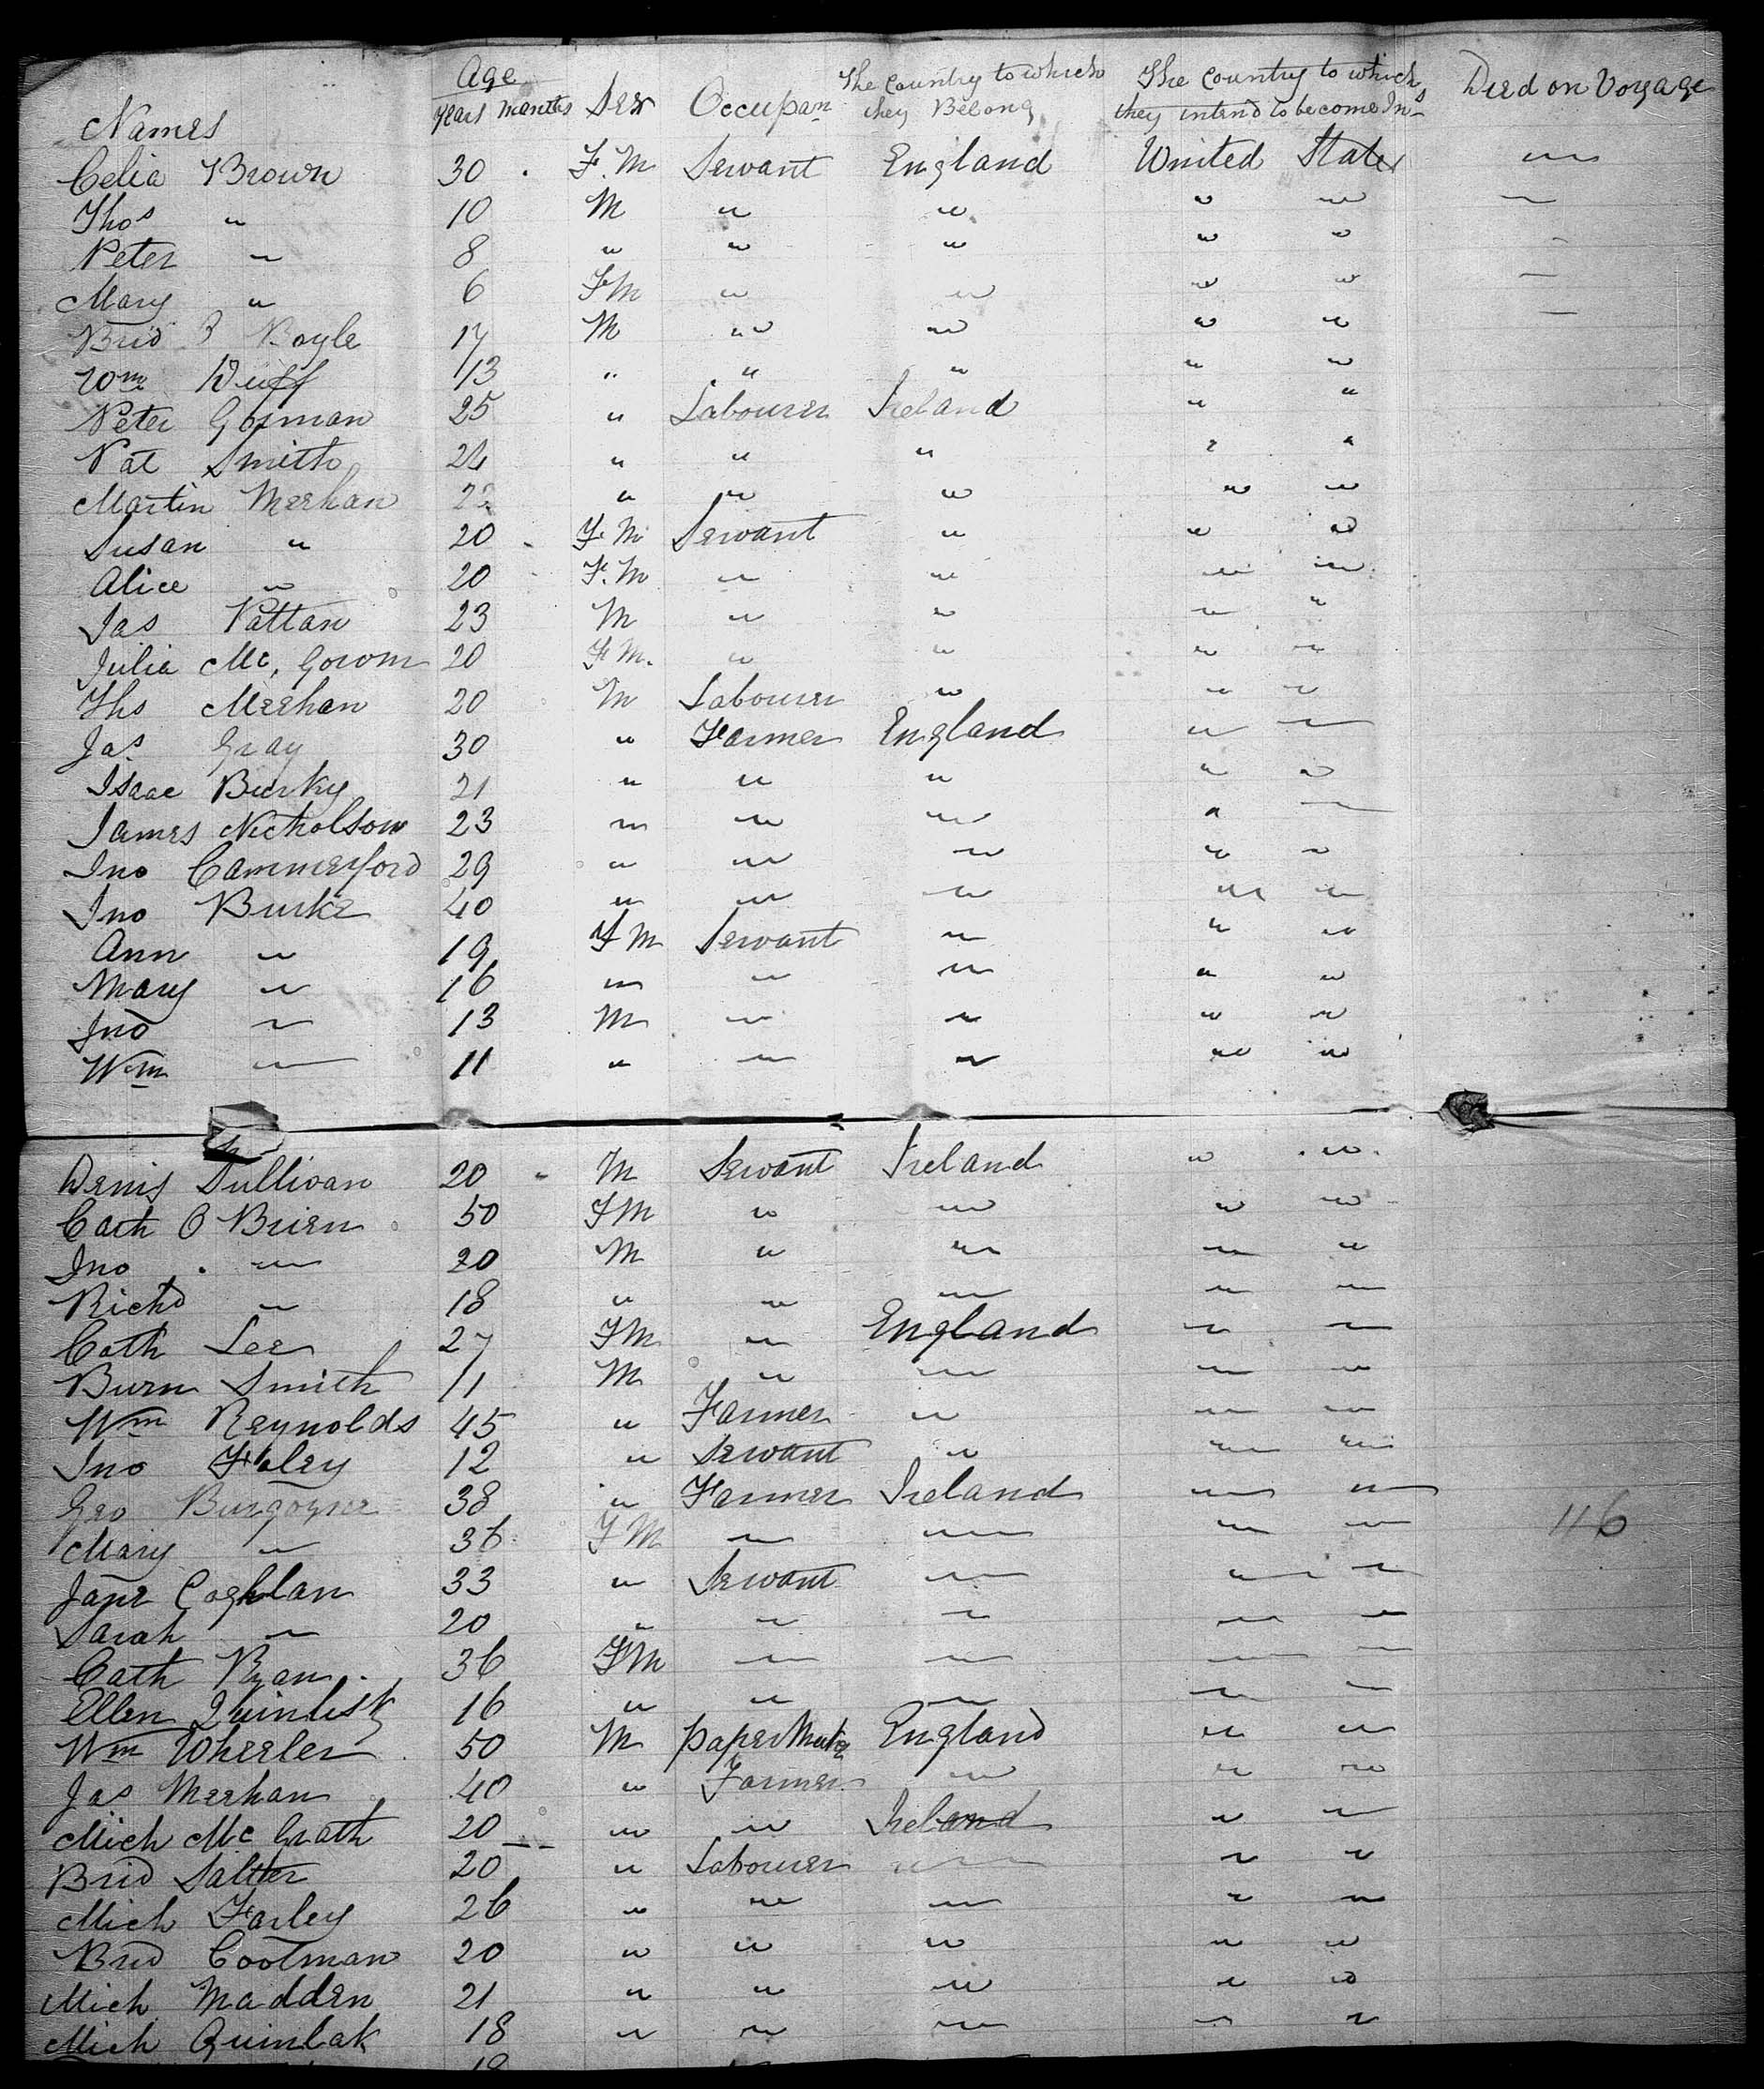 Names Age Years Months Sex Occupan The Country to which they Belong The Country to which they intend to become Ins Died on Voyage
Celia Brown 30 . F.M Servant England United States "
Thos " 10 M " " " " "
Peter " 8 " " " " " "
Mary " 6 FM " " " " "
Brid Boyle 17 M " " " " "
Wm Duff 13 " " " " "
Peter Gorman 25 " Labourer Ireland " "
Pat Smith 24 " " " " "
Martin Meehan 22 " " " " "
Susan " 20 F.M Servant " " "
Alice " 20 F.M " " " "
Jas Pattan 23 M " " " "
Julia Mc, Gowm 20 FM. " " " "
Ths Meehan 20 M Labourer " " "
Jas Gray 30 " Farmer England " "
Isaac Burky 21 " " " " "
James Nicholson 23 " " " " "
Jno Cammerford 29 " " " " "
Jno Burke 40 " " " " "
Ann " 19 FM Servant " " "
Mary " 16 " " " " "
Jno " 13 M " " " "
Wm " 11 " " " " "
Denis Sullivan 20 " M Servant Ireland " "
Cath O Brien 50 FM " " " "
Jno " 20 M " " " "
Richd " 18 " " " " "
Cath Lee 27 FM " England " "
Burn Smith 11 M " " " "
Wm Reynolds 45 " Farmer " " "
Jno Foley 12 " Servant " " "
Geo Burgoyne 38 " Farmer Ireland " "
Mary " 36 FM " " " " 116
Jane Coghlan 33 " Servant " " "
Sarah " 20 " " " " "
Cath Ryan 36 FM " " " "
Ellen 16 " " " " "
Wm Wheeler 50 M paper England " "
Jas Meehan 40 " Farmer " " "
Mich Mc Grath 20 " " Ireland " "
Brid Salter 20 " Labourer " " "
Mich Farley 26 " " " " "
Brid Cootman 20 " " " " "
Mich Madden 21 " " " " "
Mich Quinlak 18 " " " " "